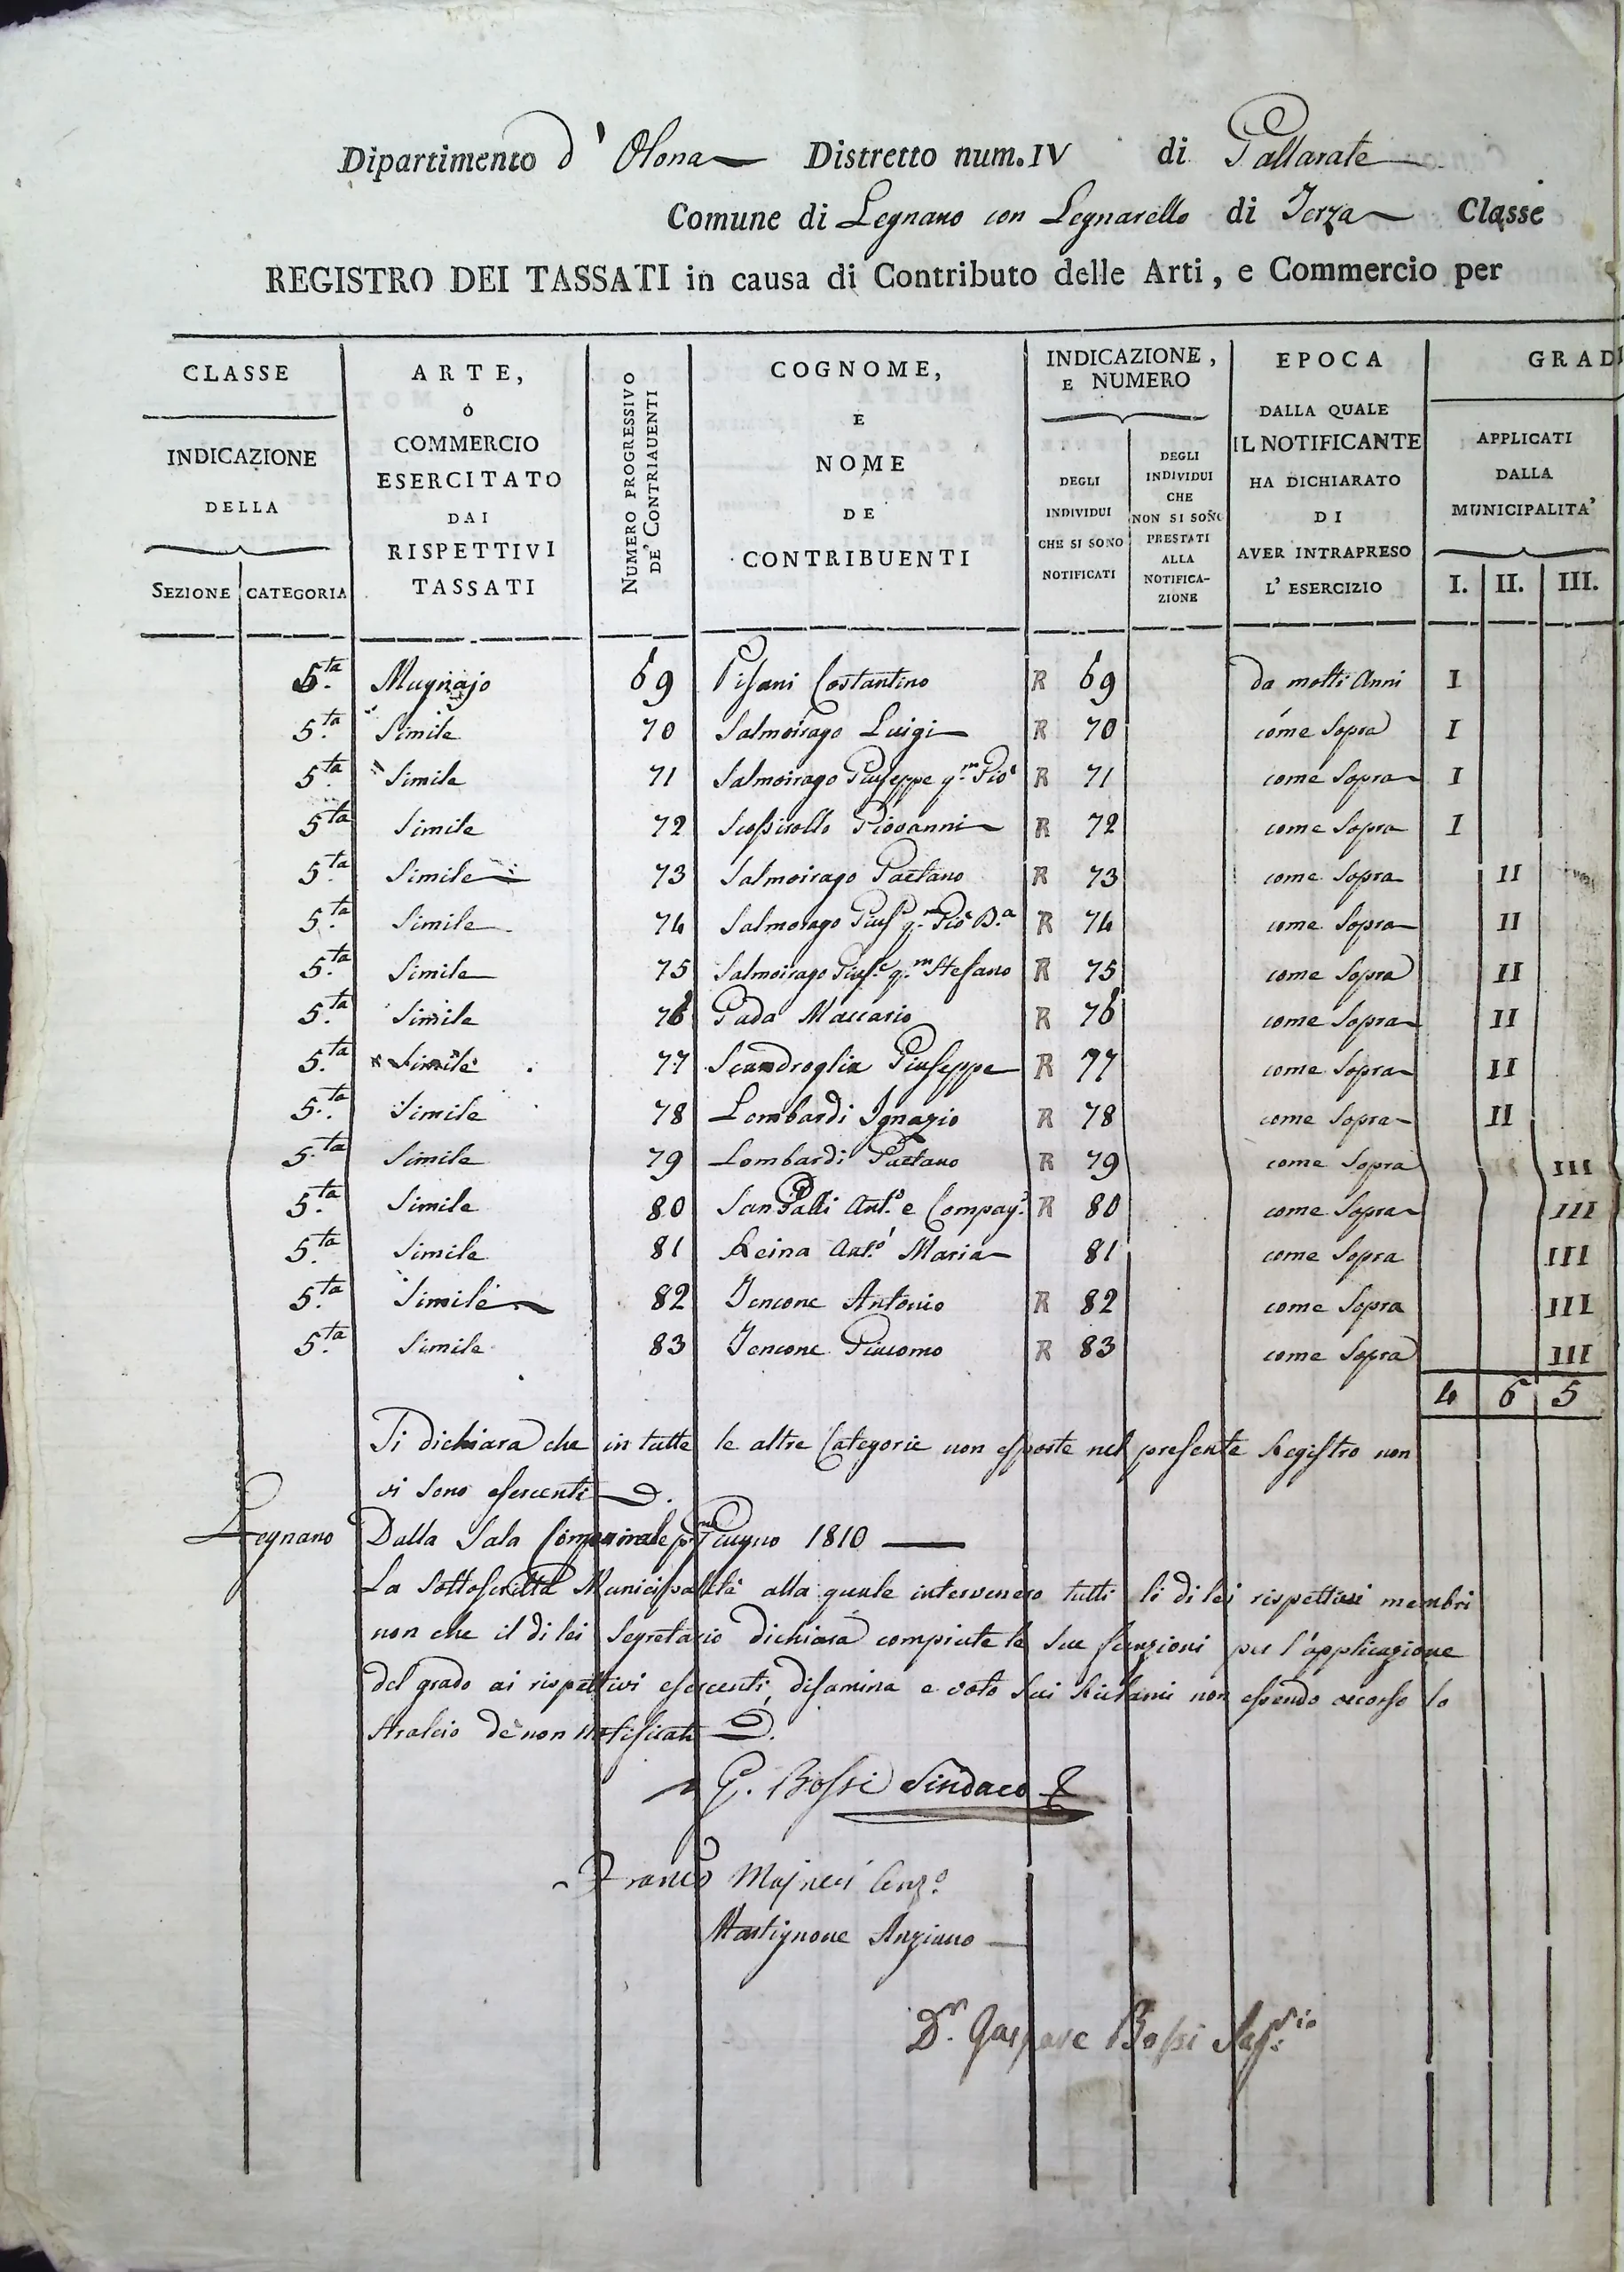 Dipartimento d'Olona Distretto num. IV di Gallarate
Comune di Legnano con Legnarello di Terza Classe
REGISTRO DEI TASSATI in causa di Contributo delle Arti, e Commercio per
CLASSE
INDICAZIONE
DELLA
SEZIONE CATEGORIA
ARTE,
Ò
COMMERCIO
ESERCITATO
DAI
RISPETTIVI
TASSATI
NUMERO PROGRESSIVO
DE' CONTRIAUENTI
COGNOME,
E
NOME
DE
CONTRIBUENTI
INDICAZIONE,
E NUMERO
DEGLI
INDIVIDUI
CHE SI SONO
NOTIFICATI
DEGLI
INDIVIDUI
CHE
NON SI SONO
PRESTATI
ALLA
NOTIFICA-
ZIONE
EPOCA
DALLA QUALE
IL NOTIFICANTE
HA DICHIARATO
DI
AVER INTRAPRESO
L'ESERCIZIO
GRAD
APPLICATI
DALLA
MUNICIPALITA'
I. II. III.
5.ta Mugnajo 69 Pisani Costantino R 69 da molti Anni I
5.ta Simile 70 Salmoirago Luigi R 70 come Sopra I
5.ta Simile 71 Salmoirago Giuseppe q.m Gio R 71 come Sopra I
5.ta Simile 72 Giovanni R 72 come Sopra I
5.ta Simile 73 Salmoirago Gaetano R 73 come Sopra II
5.ta Simile 74 Salmorago Gius.e q.m Gio B.a R 74 come Sopra II
5.ta Simile 75 Salmoirago Gius.e q.m Stefano R 75 come Sopra II
5.ta Simile 76 Gada Maccario R 76 come Sopra II
5.ta Simile 77 Scandroglia Giuseppe R 77 come Sopra II
5.ta Simile 78 Lombardi Ignazio R 78 come Sopra II
5.ta Simile 79 Lombardi Gaetano R 79 come Sopra III
5.ta Simile 80 SanGalli Ant.o e Compag.i R 80 come Sopra III
5.ta Simile 81 Reina Ant.o Maria 81 come Sopra III
5.ta Simile 82 Tencone Antonio R 82 come Sopra III
5.ta Simile 83 Tencone Giacomo R 83 come Sopra III
4 6 5
Si dichiara che in tutte le altre Categorie non esposte nel presente Registro non
vi sono esercenti
Legnano Dalla Sala Giugno 1810
La Sottoscritta Municipalità alla quale intervenero tutti li di lei rispettivi membri
non che il di lei Segretario dichiara compiute le sue funzioni per l'applicazione
del grado ai rispettivi esercenti, disamina e voto sui Reclami non essendo occorso lo
stralcio de non notificati
G. Bossi Sindaco
Fran.co Anz.o
Martignone Anziano
D.r Gaspare Bossi Seg.rio